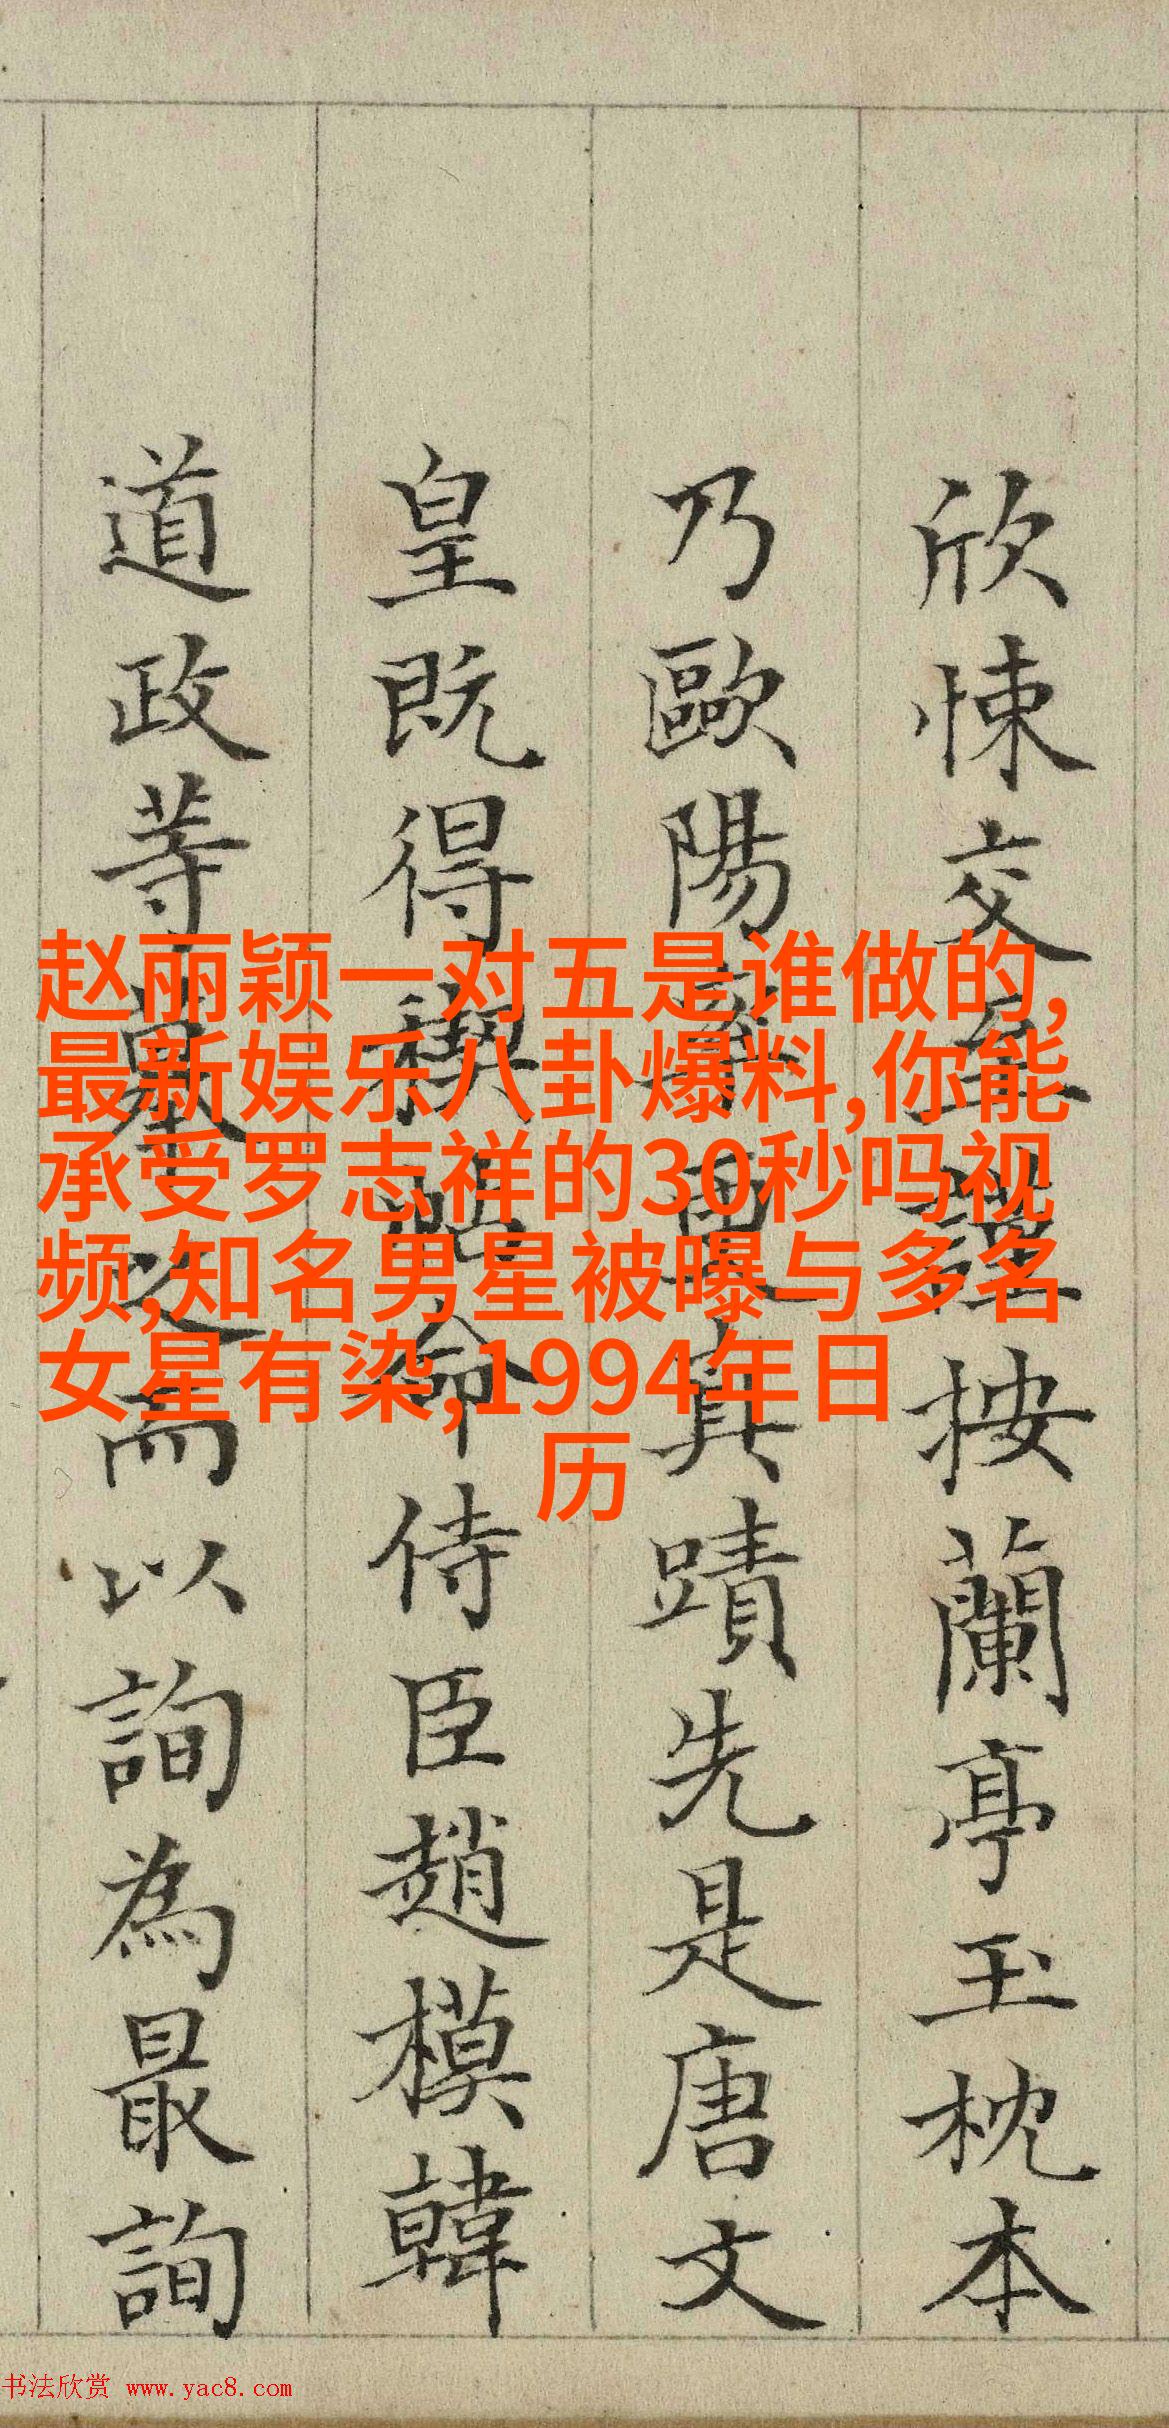 欣悚交至謹按蘭亭玉枕本
乃歐陽率更真蹟先是唐文
皇既得禊帖命侍臣趙模韓
道政等摹之而以詢為最詢
赵丽颖一对五是谁做的,
最新娱乐八卦爆料,你能
承受罗志祥的30秒吗视
频,知名男星被曝与多名
女星有染,1994年日
历
书法欣赏 www.yac8.com